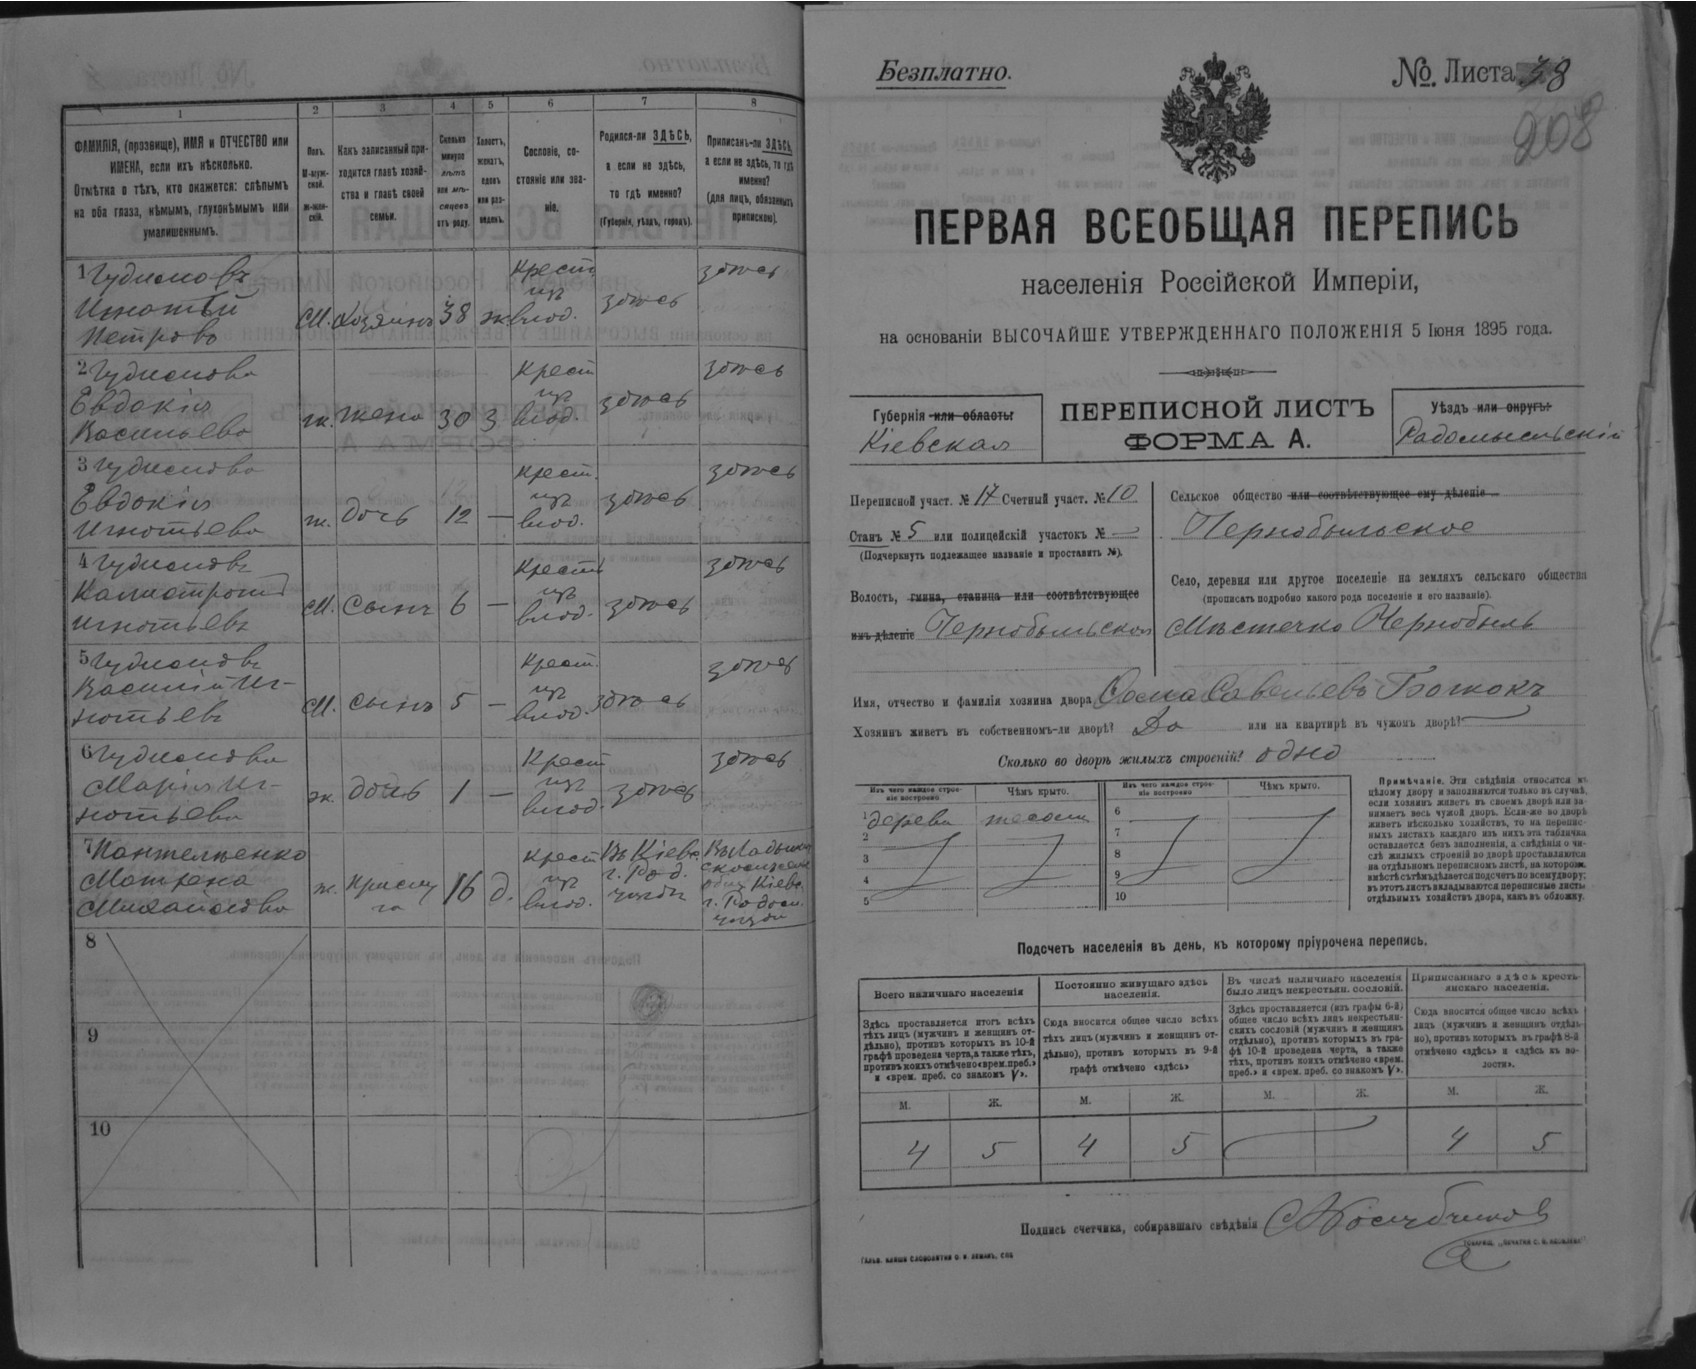 1
2
3
4
5
6
7
8
ФАМИЛІЯ, (прозвище), ИМЯ и ОТЧЕСТВО или
ИМЕНА, если ихъ нѣсколько.
Отмѣтка о тѣхъ, кто окажется: слѣпымъ
на оба глаза, нѣмымъ, глухонѣмымъ или
умалишеннымъ.
Полъ.
М-муж-
ской.
Ж-жен-
скій.
Какъ записанный при-
ходится главѣ хозяй-
ства и главѣ своей
семьи.
Сколько
минуло
лѣтъ
или мѣ-
сяцевъ
отъ роду.
Холостъ,
женатъ,
вдовъ
или раз-
веденъ.
Сословіе, со-
стояніе или зва-
ніе.
Родился-ли ЗДѢСЬ,
а если не здѣсь,
то гдѣ именно?
(Губернія, уѣздъ, городъ).
Приписанъ-ли ЗДѢСЬ,
а если не здѣсь, то гдѣ
именно?
(для лицъ, обязанныхъ
припискою).
1
Игнатій
Петровъ
М. Хозяинъ 38 ж. Крест. изъ влад. здѣсь здѣсь
2
Евдокія
Васильева
ж. жена 30 з Крест. изъ влад. здѣсь здѣсь
3
Евдокія
Игнатьева
ж. дочь 12 — крест. изъ влад. здѣсь здѣсь
4
Калистратъ
Игнатьевъ
М. сынъ 6 — крест. изъ влад. здѣсь здѣсь
5
Василій Иг-
натьевъ
М. сынъ 5 — крест. изъ влад. здѣсь здѣсь
6
Марія Иг-
натьева
ж. дочь 1 — Крест. изъ влад. здѣсь здѣсь
7 Пантелѣенко
Матрена
Михайлова
ж. прислу
га 16 д. крест. изъ влад. Въ Кіевс.
г. Рад.
уѣздѣ
8
9
10
Безплатно.
№ Листа 38
208
ПЕРВАЯ ВСЕОБЩАЯ ПЕРЕПИСЬ
населенія Россійской Имперіи,
на основаніи ВЫСОЧАЙШЕ УТВЕРЖДЕННАГО ПОЛОЖЕНІЯ 5 Іюня 1895 года.
Губернія или область:
Кіевская
ПЕРЕПИСНОЙ ЛИСТЪ
ФОРМА А.
Уѣздъ или округъ:
Радомысльскій
Переписной участ. № 17 Счетный участ. № 10
Станъ № 5 или полицейскій участокъ № —
(Подчеркнуть подлежащее названіе и проставить №).
Волость, гмина, станица или соотвѣтствующее
имъ дѣленіе Чернобыльская
Сельское общество или соотвѣтствующее ему дѣленіе
Чернобыльское
Село, деревня или другое поселеніе на земляхъ сельскаго общества
(прописать подробно какого рода поселеніе и его названіе).
Мѣстечко Чернобыль
Имя, отчество и фамилія хозяина двора Савельевъ
Хозяинъ живетъ въ собственномъ-ли дворѣ? Да или на квартирѣ въ чужомъ дворѣ? —
Сколько во дворѣ жилыхъ строеній? одно
Изъ чего каждое строе-
ніе построено
Чѣмъ крыто.
Изъ чего каждое строе-
ніе построено
Чѣмъ крыто.
1 дерева тесомъ
2
3
4
5
6
7
8
9
10
Примѣчаніе. Эти свѣдѣнія относятся къ
цѣлому двору и заполняются только въ случаѣ,
если хозяинъ живетъ въ своемъ дворѣ или за-
нимаетъ весь чужой дворъ. Если-же во дворѣ
живетъ нѣсколько хозяйствъ, то на перепис-
ныхъ листахъ каждаго изъ нихъ эта табличка
оставляется безъ заполненія, а свѣдѣнія о чи-
слѣ жилыхъ строеній во дворѣ проставляются
на отдѣльномъ переписномъ листѣ, на которомъ
вмѣстѣ съ тѣмъ дѣлается подсчетъ по всему двору;
въ этотъ листъ вкладываются переписные листы
отдѣльныхъ хозяйствъ двора, какъ въ обложку.
Подсчетъ населенія въ день, къ которому пріурочена перепись.
Всего наличнаго населенія
Здѣсь проставляется итогъ всѣхъ
тѣхъ лицъ (мужчинъ и женщинъ от-
дѣльно), противъ которыхъ въ 10-й
графѣ проведена черта, а также тѣхъ,
противъ коихъ отмѣчено «врем. преб.»
и «врем. преб. со знакомъ V».
Постоянно живущаго здѣсь
населенія.
Сюда вносится общее число всѣхъ
тѣхъ лицъ (мужчинъ и женщинъ от-
дѣльно), противъ которыхъ въ 9-й
графѣ отмѣчено «здѣсь»
Въ числѣ наличнаго населенія
было лицъ некрестьян. сословій.
Здѣсь проставляется (изъ графы 6-й)
общее число всѣхъ лицъ некрестьян-
скихъ сословій (мужчинъ и женщинъ
отдѣльно), противъ которыхъ въ гра-
фѣ 10-й проведена черта, а также
тѣхъ, противъ коихъ отмѣчено «врем.
преб.» и «врем. преб. со знакомъ V».
Приписаннаго здѣсь кресть-
янскаго населенія.
Сюда вносится общее число всѣхъ
лицъ (мужчинъ и женщинъ отдѣль-
но), противъ которыхъ въ графѣ 8-й
отмѣчено «здѣсь» и «здѣсь въ во-
лости».
М. Ж. М. Ж. М. Ж. М. Ж.
4 5 4 5 4 5
Подпись счетчика, собиравшаго свѣдѣнія